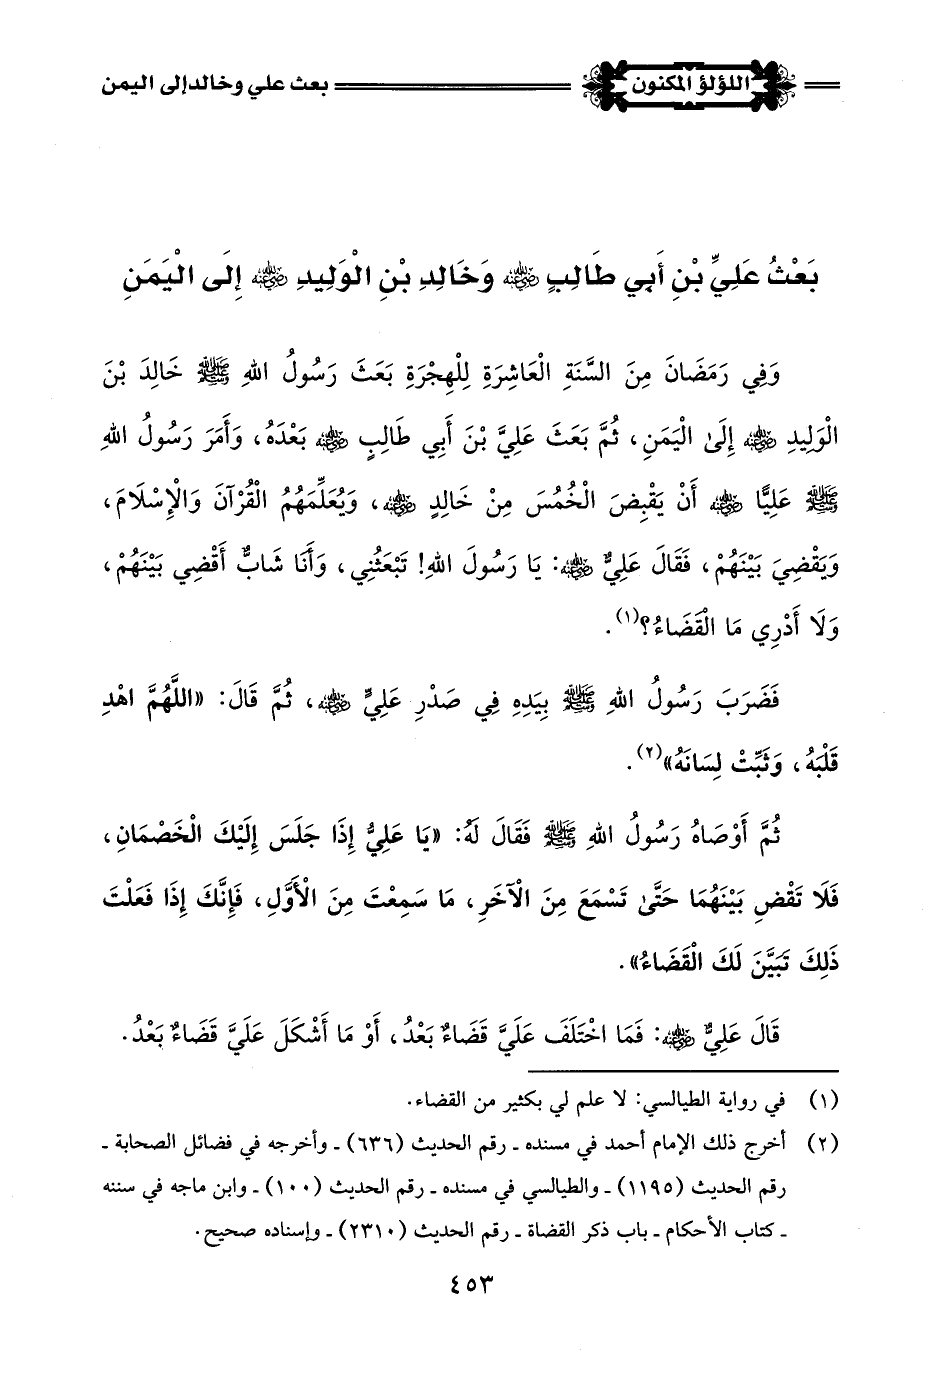 اللؤلؤ المكنون بعث علي وخالد إلى اليمن
بَعْثُ عَلِيِّ بْنِ أَبِي طَالِبٍ رضي الله عنه وَخَالِدِ بْنِ الْوَلِيدِ رضي الله عنه إِلَى الْيَمَنِ
وَفِي رَمَضَانَ مِنَ السَّنَةِ الْعَاشِرَةِ لِلْهِجْرَةِ بَعَثَ رَسُولُ اللهِ ﷺ خَالِدَ بْنَ
الْوَلِيدِ رضي الله عنه إِلَىٰ الْيَمَنِ، ثُمَّ بَعَثَ عَلِيَّ بْنَ أَبِي طَالِبٍ رضي الله عنه بَعْدَهُ، وَأَمَرَ رَسُولُ اللهِ
ﷺ عَلِيًّا رضي الله عنه أَنْ يَقْبِضَ الْخُمُسَ مِنْ خَالِدٍ رضي الله عنه، وَيُعَلِّمَهُمُ الْقُرْآنَ وَالْإِسْلَامَ،
وَيَقْضِيَ بَيْنَهُمْ، فَقَالَ عَلِيٌّ رضي الله عنه: يَا رَسُولَ اللهِ! تَبْعَثُنِي، وَأَنَا شَابٌّ أَقْضِي بَيْنَهُمْ،
وَلَا أَدْرِي مَا الْقَضَاءُ؟(١).
فَضَرَبَ رَسُولُ اللهِ ﷺ بِيَدِهِ فِي صَدْرِ عَلِيٍّ رضي الله عنه، ثُمَّ قَالَ: «اللَّهُمَّ اهْدِ
قَلْبَهُ، وَثَبِّتْ لِسَانَهُ»(٢).
ثُمَّ أَوْصَاهُ رَسُولُ اللهِ ﷺ فَقَالَ لَهُ: «يَا عَلِيُّ إِذَا جَلَسَ إِلَيْكَ الْخَصْمَانِ،
فَلَا تَقْضِ بَيْنَهُمَا حَتَّىٰ تَسْمَعَ مِنَ الْآخَرِ، مَا سَمِعْتَ مِنَ الْأَوَّلِ، فَإِنَّكَ إِذَا فَعَلْتَ
ذَلِكَ تَبَيَّنَ لَكَ الْقَضَاءُ».
قَالَ عَلِيٌّ رضي الله عنه: فَمَا اخْتَلَفَ عَلَيَّ قَضَاءٌ بَعْدُ، أَوْ مَا أَشْكَلَ عَلَيَّ قَضَاءٌ بَعْدُ.
(١) في رواية الطيالسي: لا علم لي بكثير من القضاء.
(٢) أخرج ذلك الإمام أحمد في مسنده ـ رقم الحديث (٦٣٦) ـ وأخرجه في فضائل الصحابة ـ
رقم الحديث (١١٩٥) ـ والطيالسي في مسنده ـ رقم الحديث (١٠٠) ـ وابن ماجه في سننه
ـ كتاب الأحكام ـ باب ذكر القضاة ـ رقم الحديث (٢٣١٠) ـ وإسناده صحيح.
٤٥٣